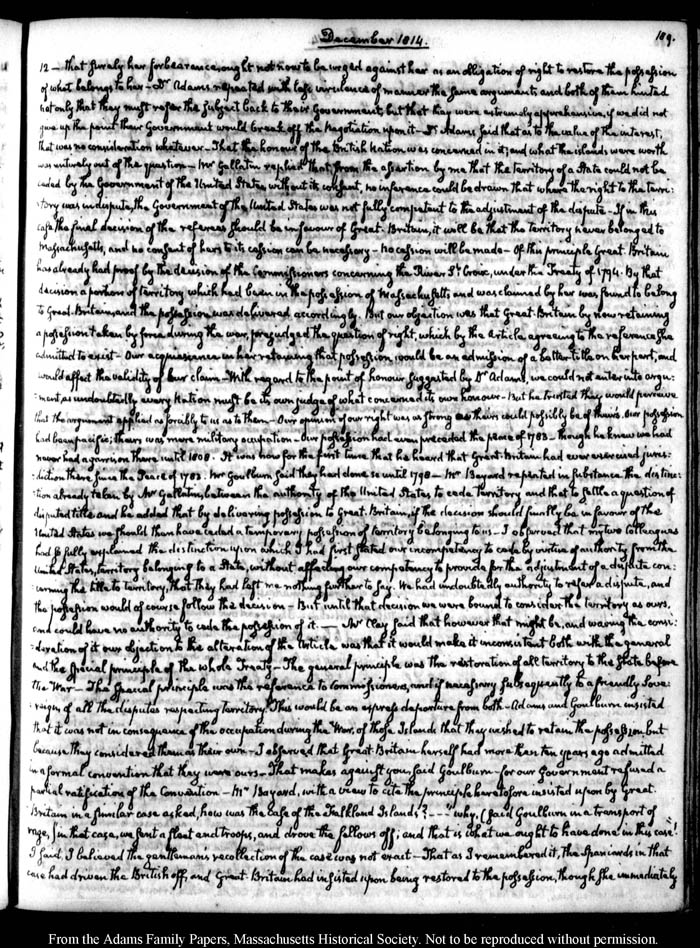 December 1814.
189.
12 — that surely her forbearance, ought not now to be urged against her as an obligation of right to restore the possession
of what belongs to her — Dr Adams repeated with less virulence of manner the same argument; and both of them hinted
not only that they must refer the subject back to their Government, but that they were extremely apprehensive, if we did not
give up the point their Government would break off the Negotiation upon it — Dr Adams said that as to the value of the interest,
that was no consideration whatever — That the honour of the British Nation was concerned in it; and what the islands were worth
was entirely out of the question — Mr Gallatin replied that from the assertion by me that the territory of a State could not be
ceded by the Government of the United States, without its consent, no inference could be drawn that where the right to the terri:
:tory was in dispute, the Government of the United States was not fully competent to the adjustment of the dispute — If in this
case the final decision of the referees should be in favour of Great-Britain, it will be that the territory never belonged to
Massachusetts, and no consent of hers to its cession can be necessary — no cession will be made — Of this principle Great-Britain
has already had proof by the decision of the Commissioners concerning the River St Croix, under the Treaty of 1794. By that
decision a portion of territory which had been in the possession of Massachusetts and was claimed by her was found to belong
to Great-Britain, and the possession was delivered accordingly. But our objection was that Great-Britain by now retaining
a possession taken by force during the war, prejudged the question of right, which by the Article agreeing to the reference she
admitted to exist — Our acquiescence in her retaining that possession, would be an admission of a better title on her part, and
would affect the validity of our claim — With regard to the point of honour suggested by Dr Adams, we could not enter into argu:
:ment as undoubtedly every Nation must be its own judge of what concerned its own honour — But he trusted they would perceive
that the argument applied as forcibly to us as to them — Our opinion of our right was as strong as theirs could possibly be of theirs. Our possession
had been pacific; theirs was mere military occupation — Our possession had even preceded the peace of 1783 — though he knew we had
never had a garrison there until 1808. It was now for the first time that he heard that Great-Britain had ever exercised juris:
:diction there since the Peace of 1783. Mr Goulburn said they had done so until 1798 — Mr Bayard repeated in substance the distinc:
:tion already taken by Mr Gallatin, between the authority of the United States to cede territory and that to settle a question of
disputed title and he added that by delivering possession to Great-Britain, if the decision should finally be in favour of the
United States we should then have ceded a temporary possession of territory belonging to us — I observed that my two Colleagues
had so fully explained the distinction upon which I had first stated our incompetency to cede by virtue of authority from the
United States, territory belonging to a State, without affecting our competency to provide for the adjustment of a dispute con:
:cerning the title to territory, that they had left me nothing further to say. We had undoubtedly authority to refer a dispute, and
the possession would of course follow the decision — But until that decision we were bound to consider the territory as ours,
and could have no authority to cede the possession of it. — Mr Clay said that however that might be, and waving the consi:
:deration of it our objection to the alteration of the Article was that it would make it inconsistent both with the general
and the special principle of the whole Treaty — The general principle was the restoration of all territory to the state before
the War — The special principle was the reference to Commissioners, and if necessary subsequently to a friendly Sove:
:reign of all the disputes respecting territory. This would be an express departure from both — Adams and Goulburn insisted
that it was not in consequence of the occupation during the War, of those Islands that they wished to retain the possession but
because they considered them as their own — I observed that Great-Britain herself had more than ten years ago admitted
in a formal convention that they were ours — That makes against you said Goulburn — for our Government refused a
partial ratification of the Convention — Mr Bayard, with a view to cite the principle heretofore insisted upon by Great-
Britain in a similar case asked, how was the case of the Falkland Islands? — - - "why, (said Goulburn in a transport of
rage,) in that case, we sent a fleet and troops, and drove the fellows off; and that is what we ought to have done in this case!"
I said, I believed the gentleman's recollection of the case was not exact — That as I remembered it, the Spaniards in that
case had driven the British off, and Great-Britain had insisted upon being restored to the possession, though she immediately
From the Adams Family Papers, Massachusetts Historical Society. Not to be reproduced without permission.